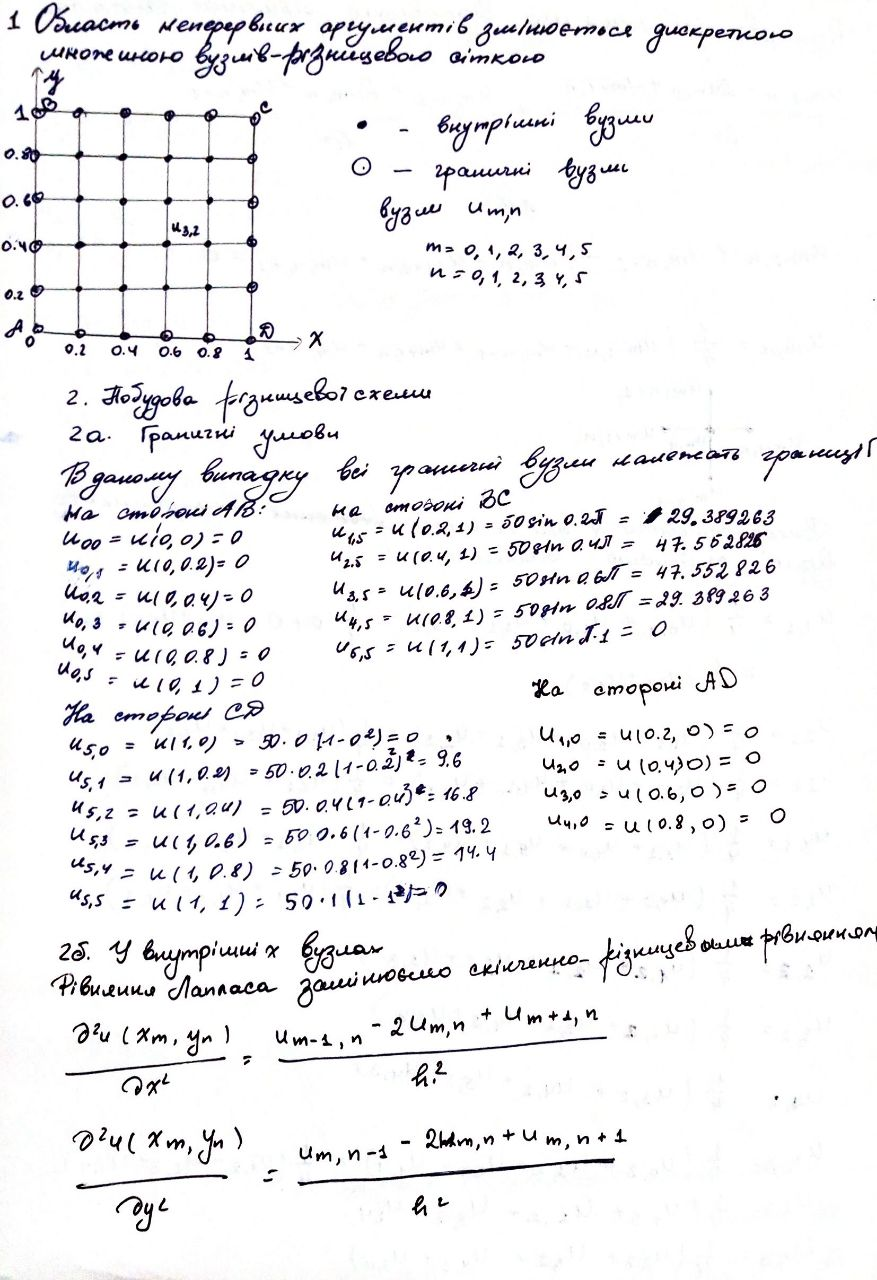 1 Область неперервних аргументів змінюється дискретною
множиною вузлів-різницевою сіткою
y
1 B C
0.8
0.6
u3,2
0.4
0.2
A D x
0 0.2 0.4 0.6 0.8 1
• - внутрішні вузли
⊙ — граничні вузли
вузли um,n
m = 0, 1, 2, 3, 4, 5
n = 0, 1, 2, 3, 4, 5
2. Побудова різницевої схеми
2а. Граничні умови
В даному випадку всі граничні вузли належать границі Г
на стороні AB:
u00 = u(0, 0) = 0
u0,1 = u(0, 0.2) = 0
u0,2 = u(0, 0.4) = 0
u0,3 = u(0, 0.6) = 0
u0,4 = u(0, 0.8) = 0
u0,5 = u(0, 1) = 0
на стороні BC
u1,5 = u(0.2, 1) = 50sin 0.2π = 29.389263
u2.5 = u(0.4, 1) = 50sin 0.4π = 47.552826
u3,5 = u(0.6, 1) = 50sin 0.6π = 47.552826
u4,5 = u(0.8, 1) = 50sin 0.8π = 29.389263
u5,5 = u(1, 1) = 50sin π·1 = 0
На стороні CD
u5,0 = u(1, 0) = 50·0(1-0²) = 0
u5,1 = u(1, 0.2) = 50·0.2(1-0.2²) = 9.6
u5,2 = u(1, 0.4) = 50·0.4(1-0.4²) = 16.8
u5,3 = u(1, 0.6) = 50 0.6(1-0.6²) = 19.2
u5,4 = u(1, 0.8) = 50·0.8(1-0.8²) = 14.4
u5,5 = u(1, 1) = 50·1(1-1²) = 0
На стороні AD
u1,0 = u(0.2, 0) = 0
u2,0 = u(0.4, 0) = 0
u3,0 = u(0.6, 0) = 0
u4,0 = u(0.8, 0) = 0
2б. У внутрішніх вузлах
Рівняння Лапласа замінюємо скінченно-різницевим рівнянням
∂²u(xm, yn) / ∂x² = (um-1,n - 2um,n + um+1,n) / h²
∂²u(xm, yn) / ∂y² = (um,n-1 - 2um,n + um,n+1) / h²